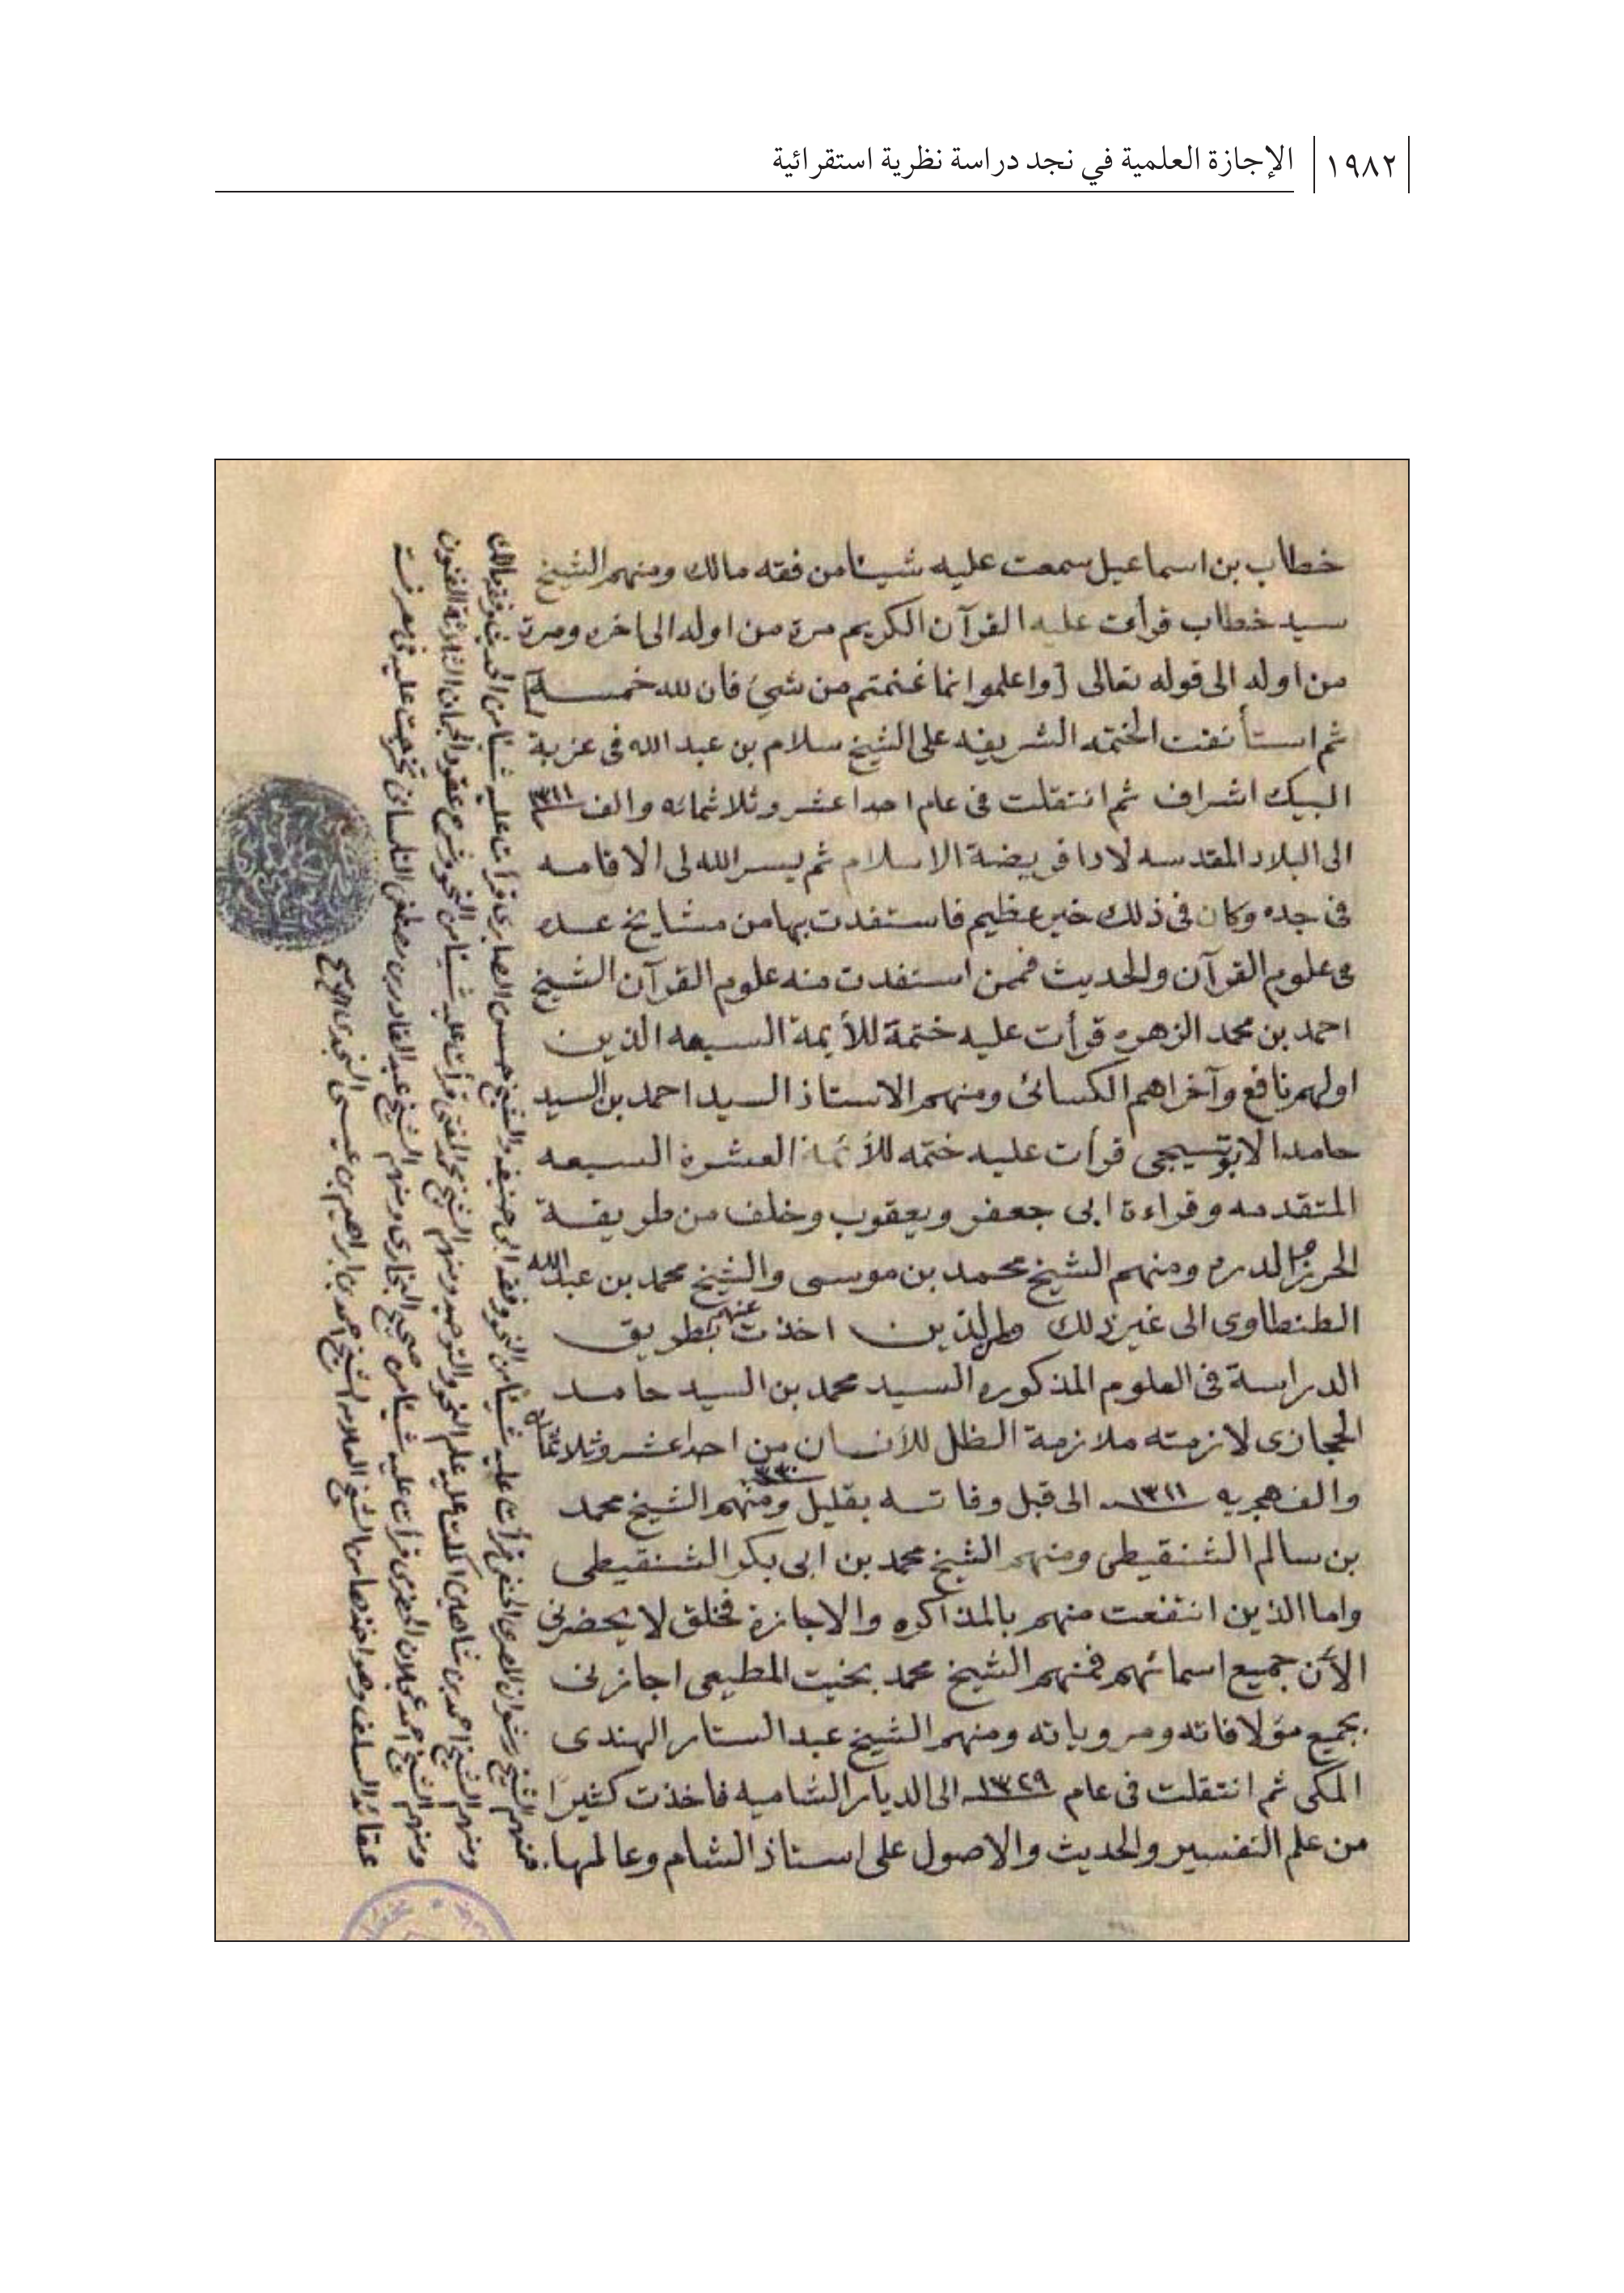 ١٩٨٢ الإجازة العلمية في نجد دراسة نظرية استقرائية
خطاب بن اسماعيل سمعت عليه شيئا من فقه مالك ومنهم الشيخ
سيد خطاب قرأت عليه القرآن الكريم مرة من اوله الى اخره ومرة
من اوله الى قوله تعالى [واعلموا انما غنمتم من شيئ فان لله خمسه]
ثم استأنفت الختمه الشريفه على الشيخ سلام بن عبد الله فى عزبة
البيك اشراف ثم انتقلت فى عام احدا عشر وثلاثمائه والف ١٣١١
الى البلاد المقدسه لادا فريضة الاسلام ثم يسر الله لى الاقامه
فى جده وكان فى ذلك خير عظيم فاستفدت بها من مشايخ عده
فى علوم القرآن والحديث فممن استفدت منه علوم القرآن الشيخ
احمد بن محمد الزهره قرأت عليه ختمة للأيمة السبعه الذين
اولهم نافع وآخراهم الكسائى ومنهم الاستاذ السيد احمد بن السيد
حامد الابوتيجى قرأت عليه ختمه للأئمة العشرة السبعه
المتقدمه وقراءة ابى جعفر ويعقوب وخلف من طريقة
الحرز والدره ومنهم الشيخ محمد بن موسى والشيخ محمد بن عبدالله
الطنطاوى الى غير ذلك والذين اخذت عنهم بطريق
الدراسة فى العلوم المذكوره السيد محمد بن السيد حامد
الحجازى لازمته ملازمة الظل للأنسان من احدا عشر وثلاثمائه
والف هجريه ١٣١١ الى قبل وفاته بقليل ومنهم الشيخ محمد
بن سالم الشنقيطى ومنهم الشيخ محمد بن ابى بكر الشنقيطى
واما الذين انتفعت منهم بالمذاكره والاجازة فخلق لا يحضرنى
الأن جميع اسمائهم فمنهم الشيخ محمد بخيت المطيعى اجازنى
بجميع مؤلافاته ومروياته ومنهم الشيخ عبد الستار الهندى
المكى ثم انتقلت فى عام ١٣٢٩ الى الديار الشاميه فاخذت كثيرًا
من علم التفسير والحديث والاصول على استاذ الشام وعالمها
منهم الشيخ رضوان المصرى الحنفى قرأت عليه شيئا من النحو وفقه ابى حنيفه والشيخ حسن قرأت عليه شيئا من الحديث وفقه مالك
ومنهم الشيخ احمد بن شاهين علم النحو والتوحيد ومنهم الشيخ محمد قرأت عليه شيئا من النحو وشرح عقود الجمان
ومنهم الشيخ احمد قرأت عليه شيئا من صحيح البخارى ومنهم الشيخ عبد القادر بن مصطفى التلمسانى
عقائد السلف وهو اخذها من الشيخ العلامه الشيخ احمد بن ابراهيم بن عيسى النجدى